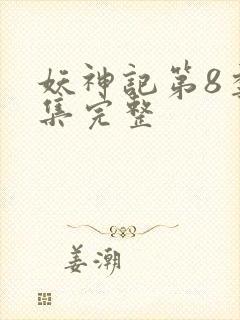 妖神記第8
集完整
姜潮